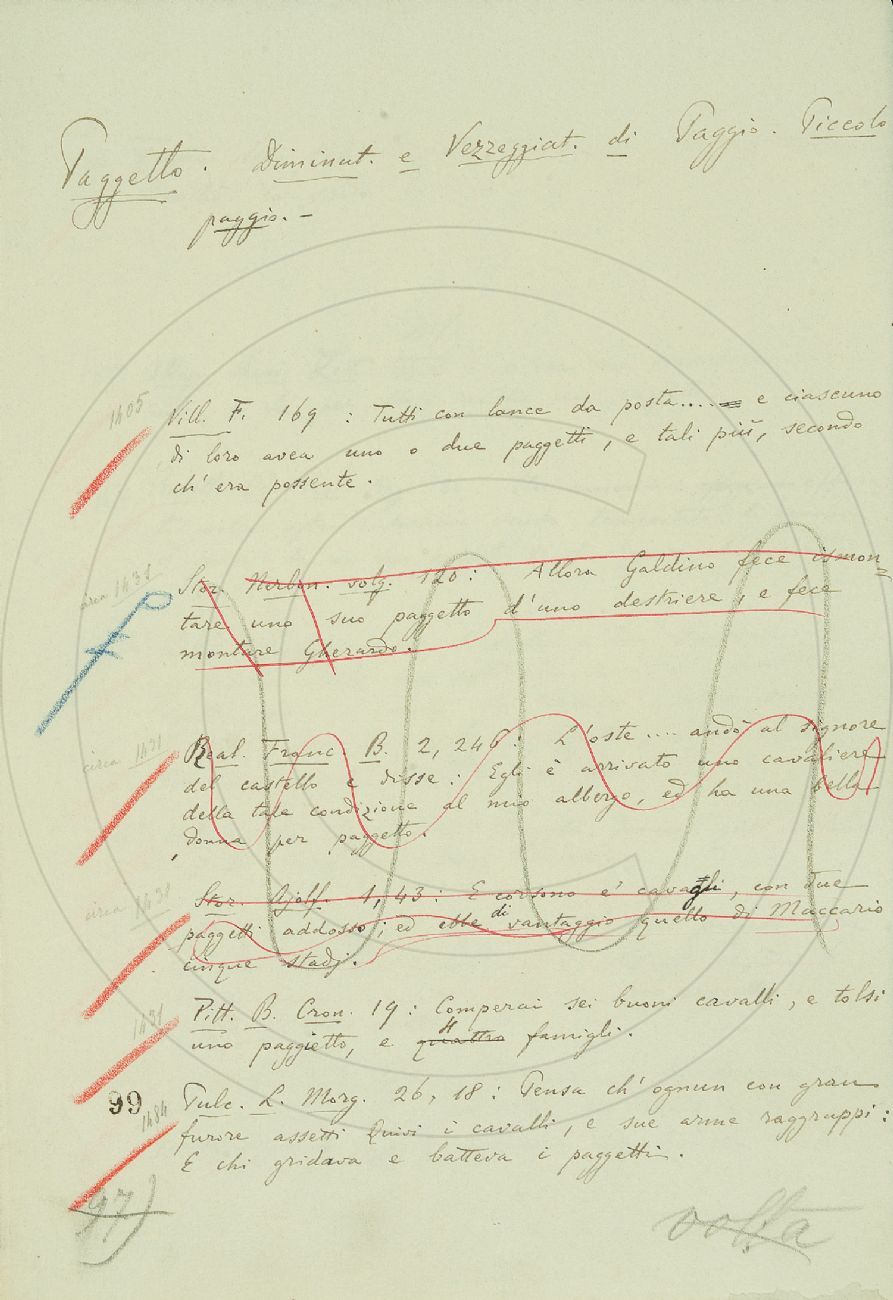 Paggetto. Diminut. e Vezzeggiat. di Paggio. Piccolo
paggio. –
1405
Vill. F. 169 : Tutti con lance da posta.... e ciascuno
di loro avea uno o due paggetti, e tali più, secondo
ch' era possente.
circa 1431
Stor. Nerbon. volg. 120 : Allora Galdino fece ismon=
tare uno suo paggetto d'uno destriere, e fece
montare Gherardo.
circa 1431
Real. Franc. B. 2, 246 : L'oste .... andò al signore
del castello e disse : Egli è arrivato uno cavaliere
della tale condizione al mio albergo, ed ha una bella
donna per paggetto.
circa 1431
Stor. Ajolf. 1, 43 : E corsono e' cavagli, con due
paggetti addosso; ed ebbe di vantaggio quello di Maccario
cinque stadj.
1431
Pitt. B. Cron. 19 : Comperai sei buoni cavalli, e tolsi
uno paggietto, e quattro 4 famigli.
99
1484
Pulc. L. Morg. 26, 18 : Pensa ch' ognun con gran
furore assetti Quivi i cavalli, e sue arme raggruppi :
E chi gridava e batteva i paggetti.
97)
volta